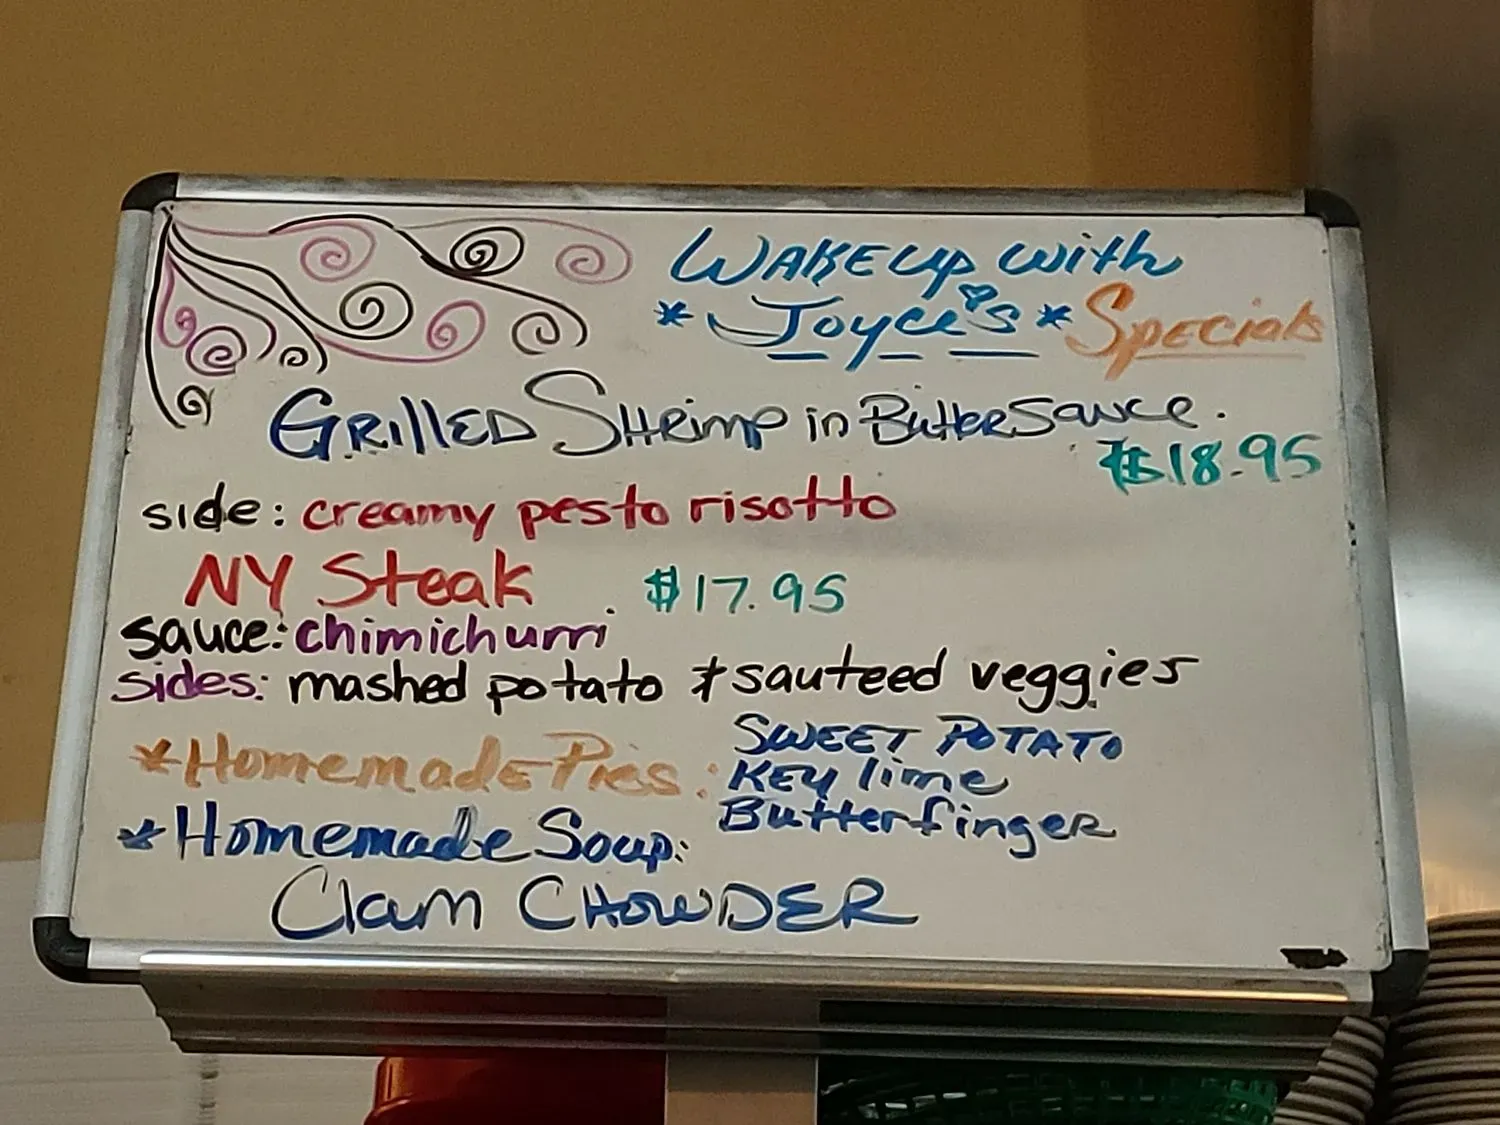 WAKE up with
* Joyce's * Specials
GRILLED SHRimp in Butter Sauce.
$18.95
side: creamy pesto risotto
NY Steak $17.95
sauce: chimichurri
sides: mashed potato & sauteed veggies
*Homemade Pies: SWEET POTATO
KEY lime
Butterfinger
*Homemade Soup:
Clam CHOWDER